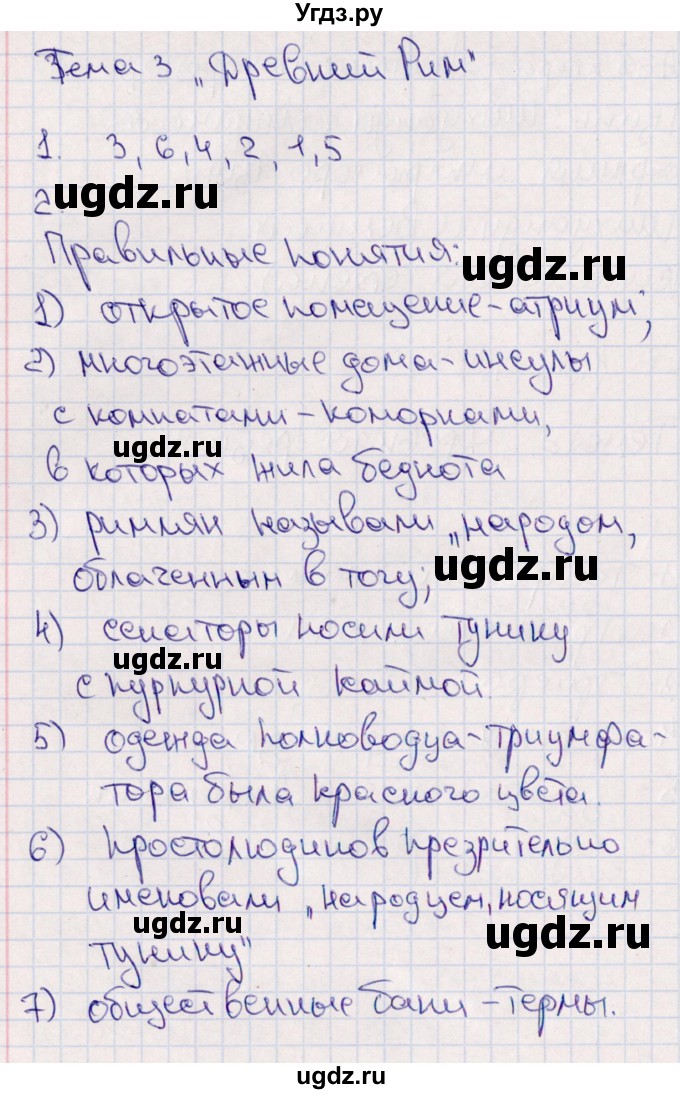 Угдз.ру
Тема 3 „Древний Рим"
1. 3, 6, 4, 2, 1, 5
ugdz.ru
2.
Правильные понятия:
ugdz.ru
1) открытое помещение-атриум;
2) многоэтажные дома-инсулы
с комнатами-коморками,
ugdz.ru
в которых жила беднота
3) римлян называли „народом,
облаченным в тогу;
ugdz.ru
4) сенаторы носили тунику
ugdz.ru
с пурпурной каймой.
5) одежда полководца-триумфа-
тора была красного цвета.
6) простолюдинов презрительно
именовали „народцем, носящим
ugdz.ru
ugdz.ru
тунику"
7) общественные бани-термы.
ugdz.ru